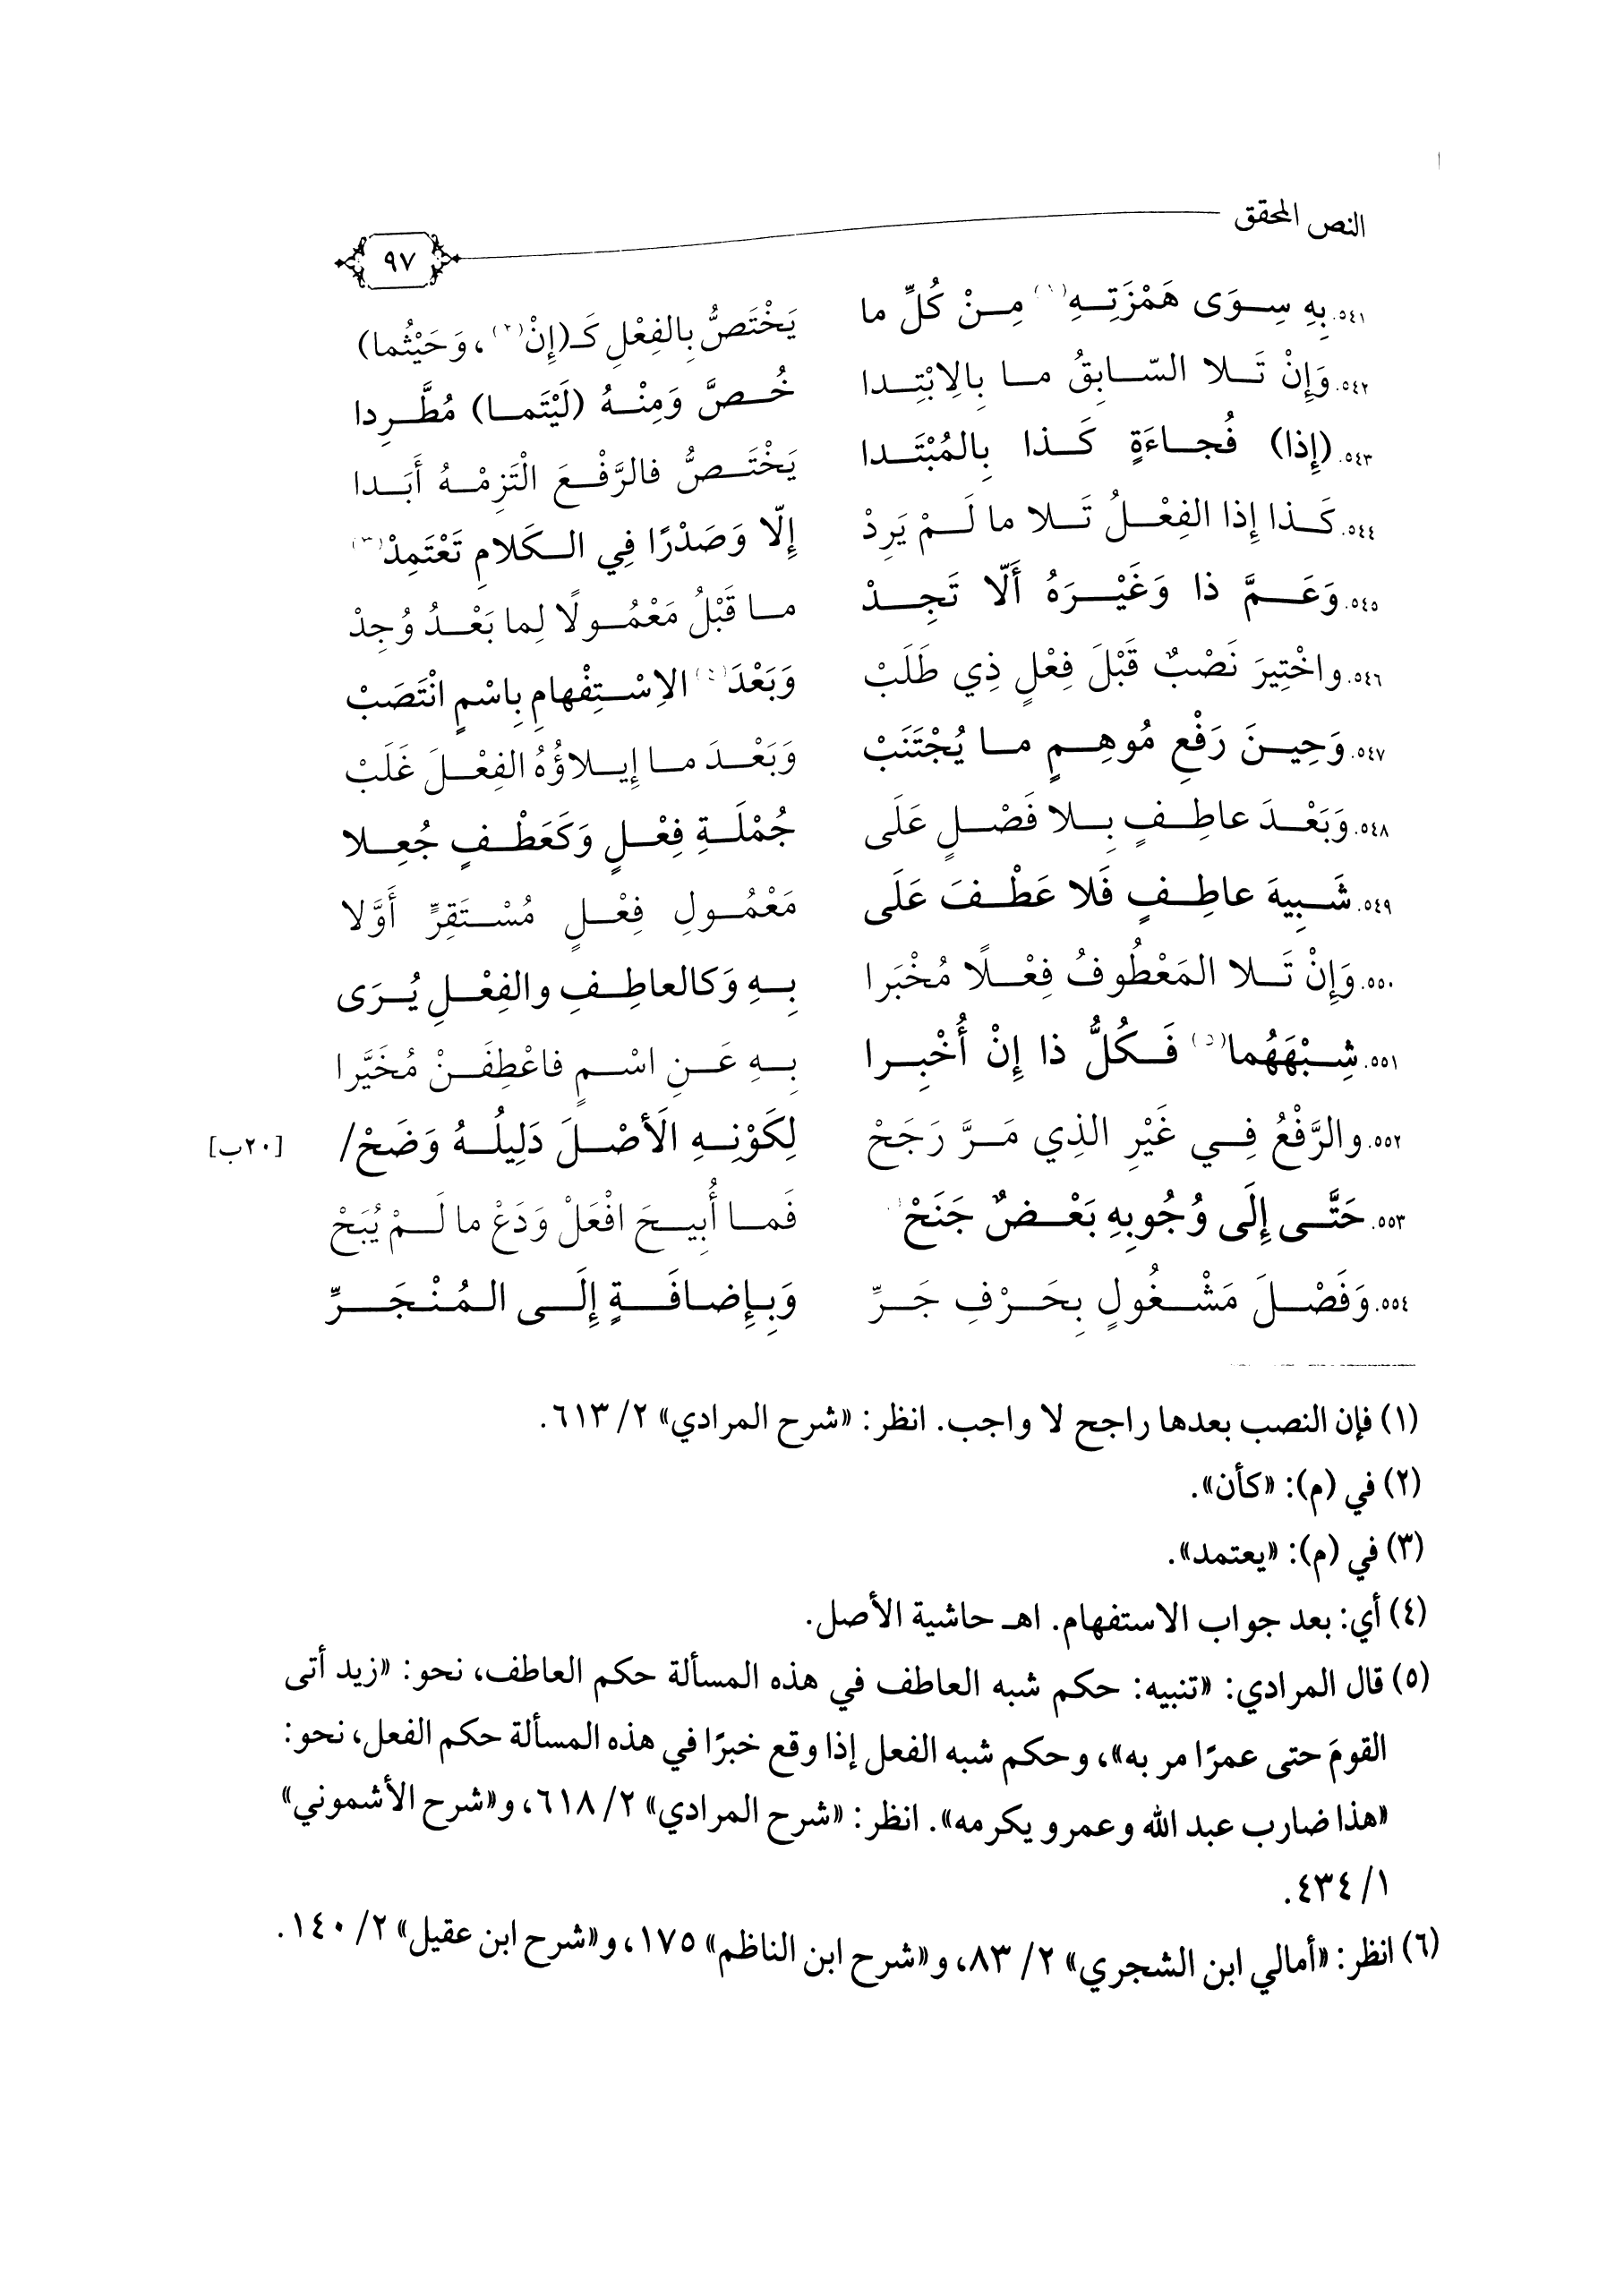 النص المحقق
٩٧
٥٤١. بِهِ سِوَى هَمْزَتِهِ(١) مِنْ كُلِّ ما يَخْتَصُّ بِالفِعْلِ كَـ(إِنْ(٢)، وَحَيْثُما)
٥٤٢. وَإِنْ تَلا السّابِقُ ما بِالِابْتِدا خُصَّ وَمِنْهُ (لَيْتَما) مُطَّرِدا
٥٤٣. (إِذا) فُجاءَةٍ كَذا بِالمُبْتَدا يَخْتَصُّ فالرَّفْعَ الْتَزِمْهُ أَبَدا
٥٤٤. كَذا إِذا الفِعْلُ تَلا ما لَمْ يَرِدْ إِلّا وَصَدْرًا فِي الكَلامِ تَعْتَمِدْ(٣)
٥٤٥. وَعَمَّ ذا وَغَيْرَهُ أَلّا تَجِدْ ما قَبْلُ مَعْمُولًا لِما بَعْدُ وُجِدْ
٥٤٦. واخْتِيرَ نَصْبٌ قَبْلَ فِعْلٍ ذِي طَلَبْ وَبَعْدَ(٤) الاِسْتِفْهامِ بِاسْمٍ انْتَصَبْ
٥٤٧. وَحِينَ رَفْعِ مُوهِمٍ ما يُجْتَنَبْ وَبَعْدَ ما إِيلاؤُهُ الفِعْلَ غَلَبْ
٥٤٨. وَبَعْدَ عاطِفٍ بِلا فَصْلٍ عَلَى جُمْلَةِ فِعْلٍ وَكَعَطْفٍ جُعِلا
٥٤٩. شَبِيهَ عاطِفٍ فَلا عَطْفَ عَلَى مَعْمُولِ فِعْلٍ مُسْتَقِرٍّ أَوَّلا
٥٥٠. وَإِنْ تَلا المَعْطُوفُ فِعْلًا مُخْبَرا بِهِ وَكالعاطِفِ والفِعْلِ يُرَى
٥٥١. شِبْهَهُما(٥) فَكُلُّ ذا إِنْ أُخْبِرا بِهِ عَنِ اسْمٍ فاعْطِفَنْ مُخَيَّرا
٥٥٢. والرَّفْعُ فِي غَيْرِ الذِي مَرَّ رَجَحْ لِكَوْنِهِ الَأصْلَ دَلِيلُهُ وَضَحْ/ [٢٠ب]
٥٥٣. حَتَّى إِلَى وُجُوبِهِ بَعْضٌ جَنَحْ فَما أُبِيحَ افْعَلْ وَدَعْ ما لَمْ يُبَحْ
٥٥٤. وَفَصْلَ مَشْغُولٍ بِحَرْفِ جَرِّ وَبِإِضافَةٍ إِلَى المُنْجَرِّ
(١) فإن النصب بعدها راجح لا واجب. انظر: «شرح المرادي» ٢/ ٦١٣.
(٢) في (م): «كأن».
(٣) في (م): «يعتمد».
(٤) أي: بعد جواب الاستفهام. اهـ حاشية الأصل.
(٥) قال المرادي: «تنبيه: حكم شبه العاطف في هذه المسألة حكم العاطف، نحو: «زيد أتى
القومَ حتى عمرًا مر به»، وحكم شبه الفعل إذا وقع خبرًا في هذه المسألة حكم الفعل، نحو:
«هذا ضارب عبد الله وعمرو يكرمه». انظر: «شرح المرادي» ٢/ ٦١٨، و«شرح الأشموني»
١/ ٤٣٤.
(٦) انظر: «أمالي ابن الشجري» ٢/ ٨٣، و«شرح ابن الناظم» ١٧٥، و«شرح ابن عقيل» ٢/ ١٤٠.